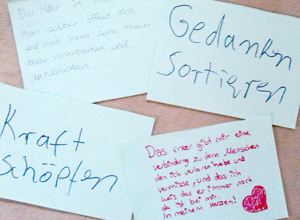 Man selber öffnet sich
und man kann seine Trauer
besser verarbeiten und
Gedanken
Sortieren
Kraft
Schöpfen
Das meer gibt mir eine
verbindung zu dem Menschen
den ich verloren habe und
vermisse, und das ich
weiß das er immer noch
da ist bei mir.
In meinem Herzen!